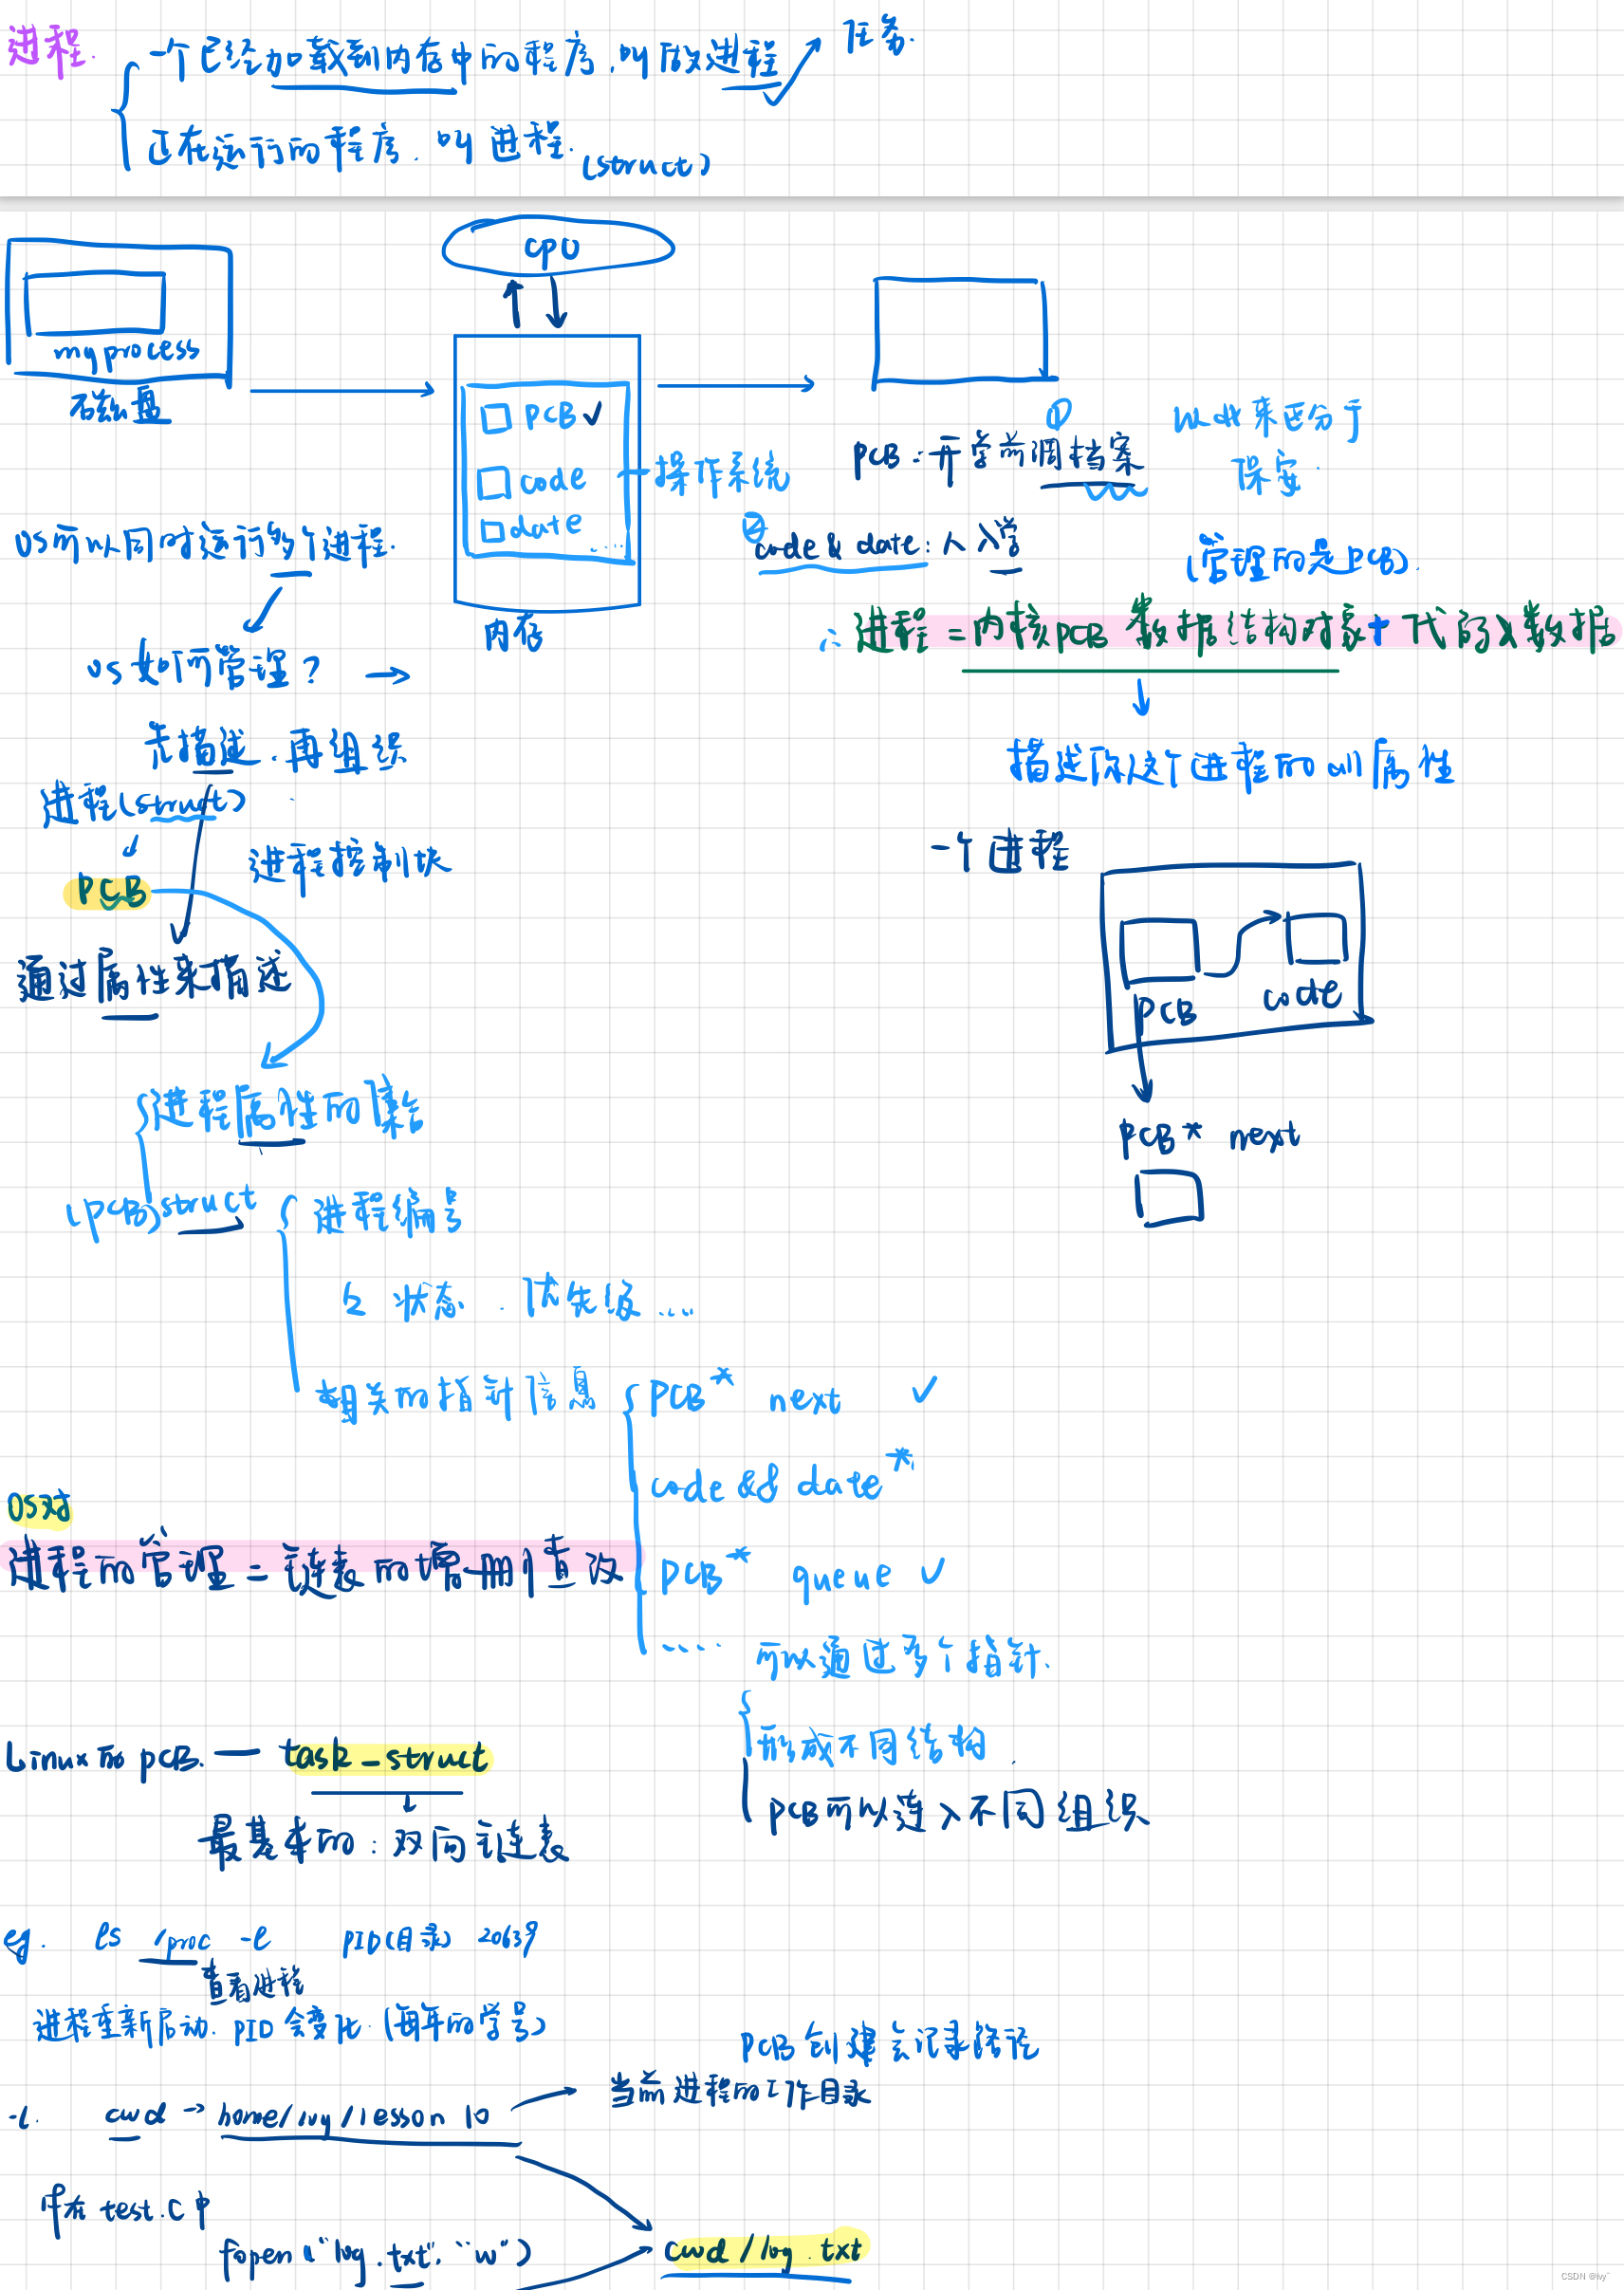 进程.
一个已经加载到内存中的程序，叫做进程
任务.
正在运行的程序，叫进程.
(struct)
CPU
myprocess
磁盘
PCB
code
date
....
操作系统
内存
① PCB：开学前调档案
以此来区分于
保安.
② code & date：人入学
(管理的是PCB).
OS可以同时运行多个进程.
∴ 进程 = 内核PCB 数据结构对象 + 代码&数据
OS如何管理？
先描述，再组织
描述你这个进程的all属性
进程(struct)
进程控制块
PCB
一个进程
通过属性来描述
PCB
code
进程属性的集合
PCB* next
(PCB)struct
进程编号
状态，优先级....
相关的指针信息
PCB* next
code && date*
OS对
进程的管理 = 链表的增删查改
PCB* queue
....
可以通过多个指针.
形成不同结构.
PCB可以连入不同组织
Linux的PCB. — task_struct
最基本的：双向链表
eg. ls /proc -l PID(目录) 20639
查看进程
进程重新启动. PID会变化.(每年的学号)
PCB创建会记录路径
当前进程的工作目录
-l. cwd → home/ivy/lesson 10
在test.c中
fopen("log.txt", "w")
cwd/log.txt
CSDN @ivy~